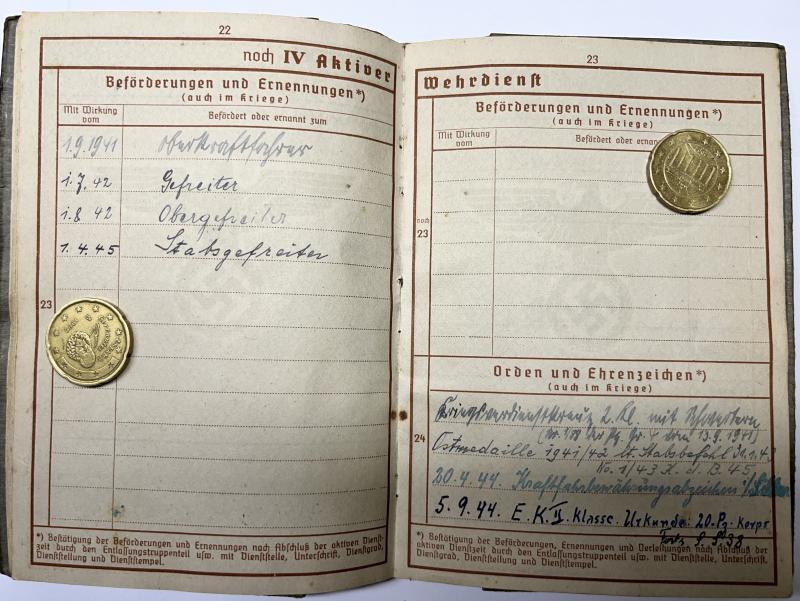 22
noch IV Aktiver
Beförderungen und Ernennungen*)
(auch im Kriege)
Mit Wirkung vom
Befördert oder ernannt zum
1.9.1941 Oberkraftfahrer
1.7.42 Gefreiter
1.8 42 Obergefreiter
1.4.45 Stabsgefreiter
23
*) Bestätigung der Beförderungen und Ernennungen nach Abschluß der aktiven Dienst-
zeit durch den Entlassungstruppenteil usw. mit Dienststelle, Unterschrift, Dienstgrad,
Dienststellung und Dienststempel.
23
Wehrdienst
Beförderungen und Ernennungen*)
(auch im Kriege)
Mit Wirkung vom
Befördert oder ernan
noch
23
Orden und Ehrenzeichen*)
(auch im Kriege)
Kriegsverdienstkreuz 2. Kl. mit Schwertern
13.9.1941)
24
Ostmedaille 1941/42 lt. Stabsbefehl
No. 1/43 K. d. B. 45
20.4.44 Kraftfahrbewährungsabzeichen i/Silber
5.9.44. E.K. II. Klasse. Urkunde: 20-Pz-Korps
Forts. S. 38
*) Bestätigung der Beförderungen, Ernennungen und Verleihungen nach Abschluß der
aktiven Dienstzeit durch den Entlassungstruppenteil usw. mit Dienststelle, Unterschrift,
Dienstgrad, Dienststellung und Dienststempel.